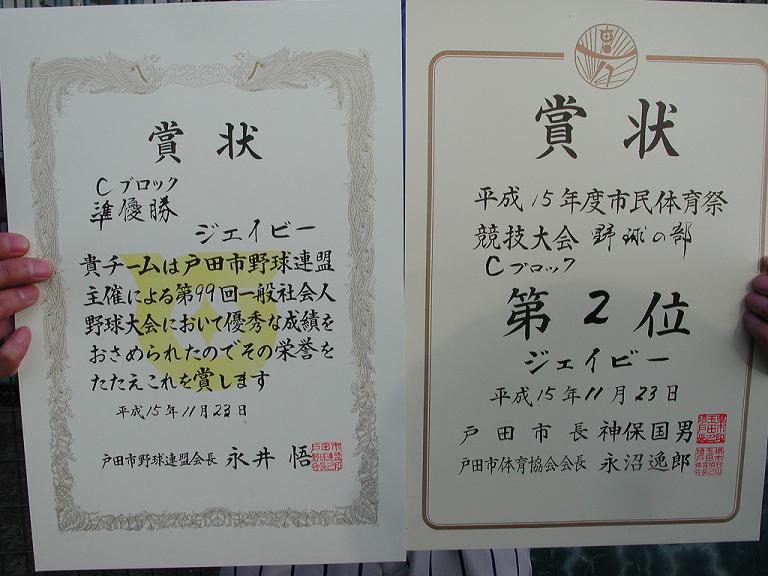 賞状
Cブロック
準優勝
ジェイビー
貴チームは戸田市野球連盟
主催による第99回一般社会人
野球大会において優秀な成績を
おさめられたのでその栄誉を
たたえこれを賞します
平成15年11月23日
戸田市野球連盟会長 永井 悟
賞状
平成15年度市民体育祭
競技大会 野球の部
Cブロック
第2位
ジェイビー
平成15年11月23日
戸田市長 神保国男
戸田市体育協会会長 永沼逸郎